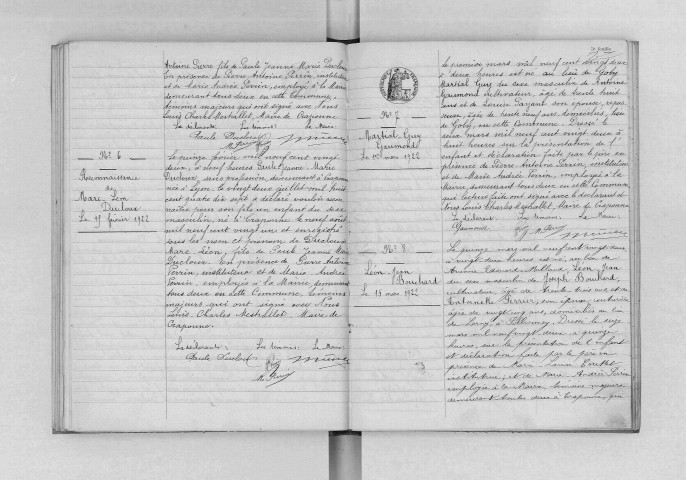 Antoine Pierre fils de Paule Jeanne Marie Ducloux
En présence de Pierre Antoine Perrin, instituteur
et de Marie Andrée Perrin, employée à la Mairie
demeurant tous deux en cette Commune,
témoins majeurs qui ont signé avec Nous
Louis Charles Mestrallet, Maire de Craponne
La déclarante. Les témoins. Le Maire.
Paule Ducloux
No 6
Reconnaissance
de
Marc Léon
Ducloux
Le 15 février 1922
Le quinze février mil neuf cent vingt
deux, à neuf heures Paule Jeanne Marie
Ducloux, sans profession, demeurant à Craponne
née à Lyon le vingt deux juillet mil huit
cent quatre vingt sept a déclaré vouloir recon
naître pour son fils un enfant du sexe
masculin, né à Craponne le neuf août
mil neuf cent vingt un et enregistré
sous les nom et prénoms de Ducloux
Marc Léon, fils de Paule Jeanne Marie
Ducloux. En présence de Pierre Antoine
Perrin, instituteur et de Marie Andrée
Perrin, employée à la Mairie demeurant
tous deux en cette Commune, témoins
majeurs qui ont signé avec Nous
Louis Charles Mestrallet Maire de
Craponne.
La déclarante: Les témoins: Le Maire:
Paule Ducloux
No 7
Martial Guy
Gaumond
Le 1er mars 1922
Le premier mars mil neuf cent vingt deux
à deux heures est né au lieu de Goby
Martial Guy du sexe masculin de Antoine
Gaumond cultivateur, âgé de trente huit
ans et de Louise son épouse,
âgée de trente neuf ans, domiciliés, lieu
de Goby, en cette Commune. Dressé le
deux mars mil neuf cent vingt deux à
huit heures sur la présentation de l'
enfant et déclaration faite par le père en
présence de Pierre Antoine Perrin, instituteur
et de Marie Andrée Perrin, employée à la
Mairie demeurant tous deux en cette Commune,
qui lecture faite ont signé avec le déclarant et
Nous Louis Charles Mestrallet, Maire de Craponne
Le déclarant Les témoins Le Maire
Gaumond
No 8
Léon Jean
Bouchard
Le 15 mars 1922
Le quinze mars mil neuf cent vingt deux
à vingt deux heures est né, au lieu de
Léon Jean
du sexe masculin de Joseph Bouchard,
cultivateur, âgé de trente trois ans et de
Antoinette Perrier, son épouse, couturière
âgée de vingt cinq ans, domiciliés au lieu
Dressé le seize
mars mil neuf cent vingt deux à quinze
heures, sur la présentation de l'enfant
et déclaration faite par le père en
présence de
institutrice, et de Marie Andrée Perrin
employée à la Mairie, témoins majeurs
demeurant toutes deux à Craponne, qui